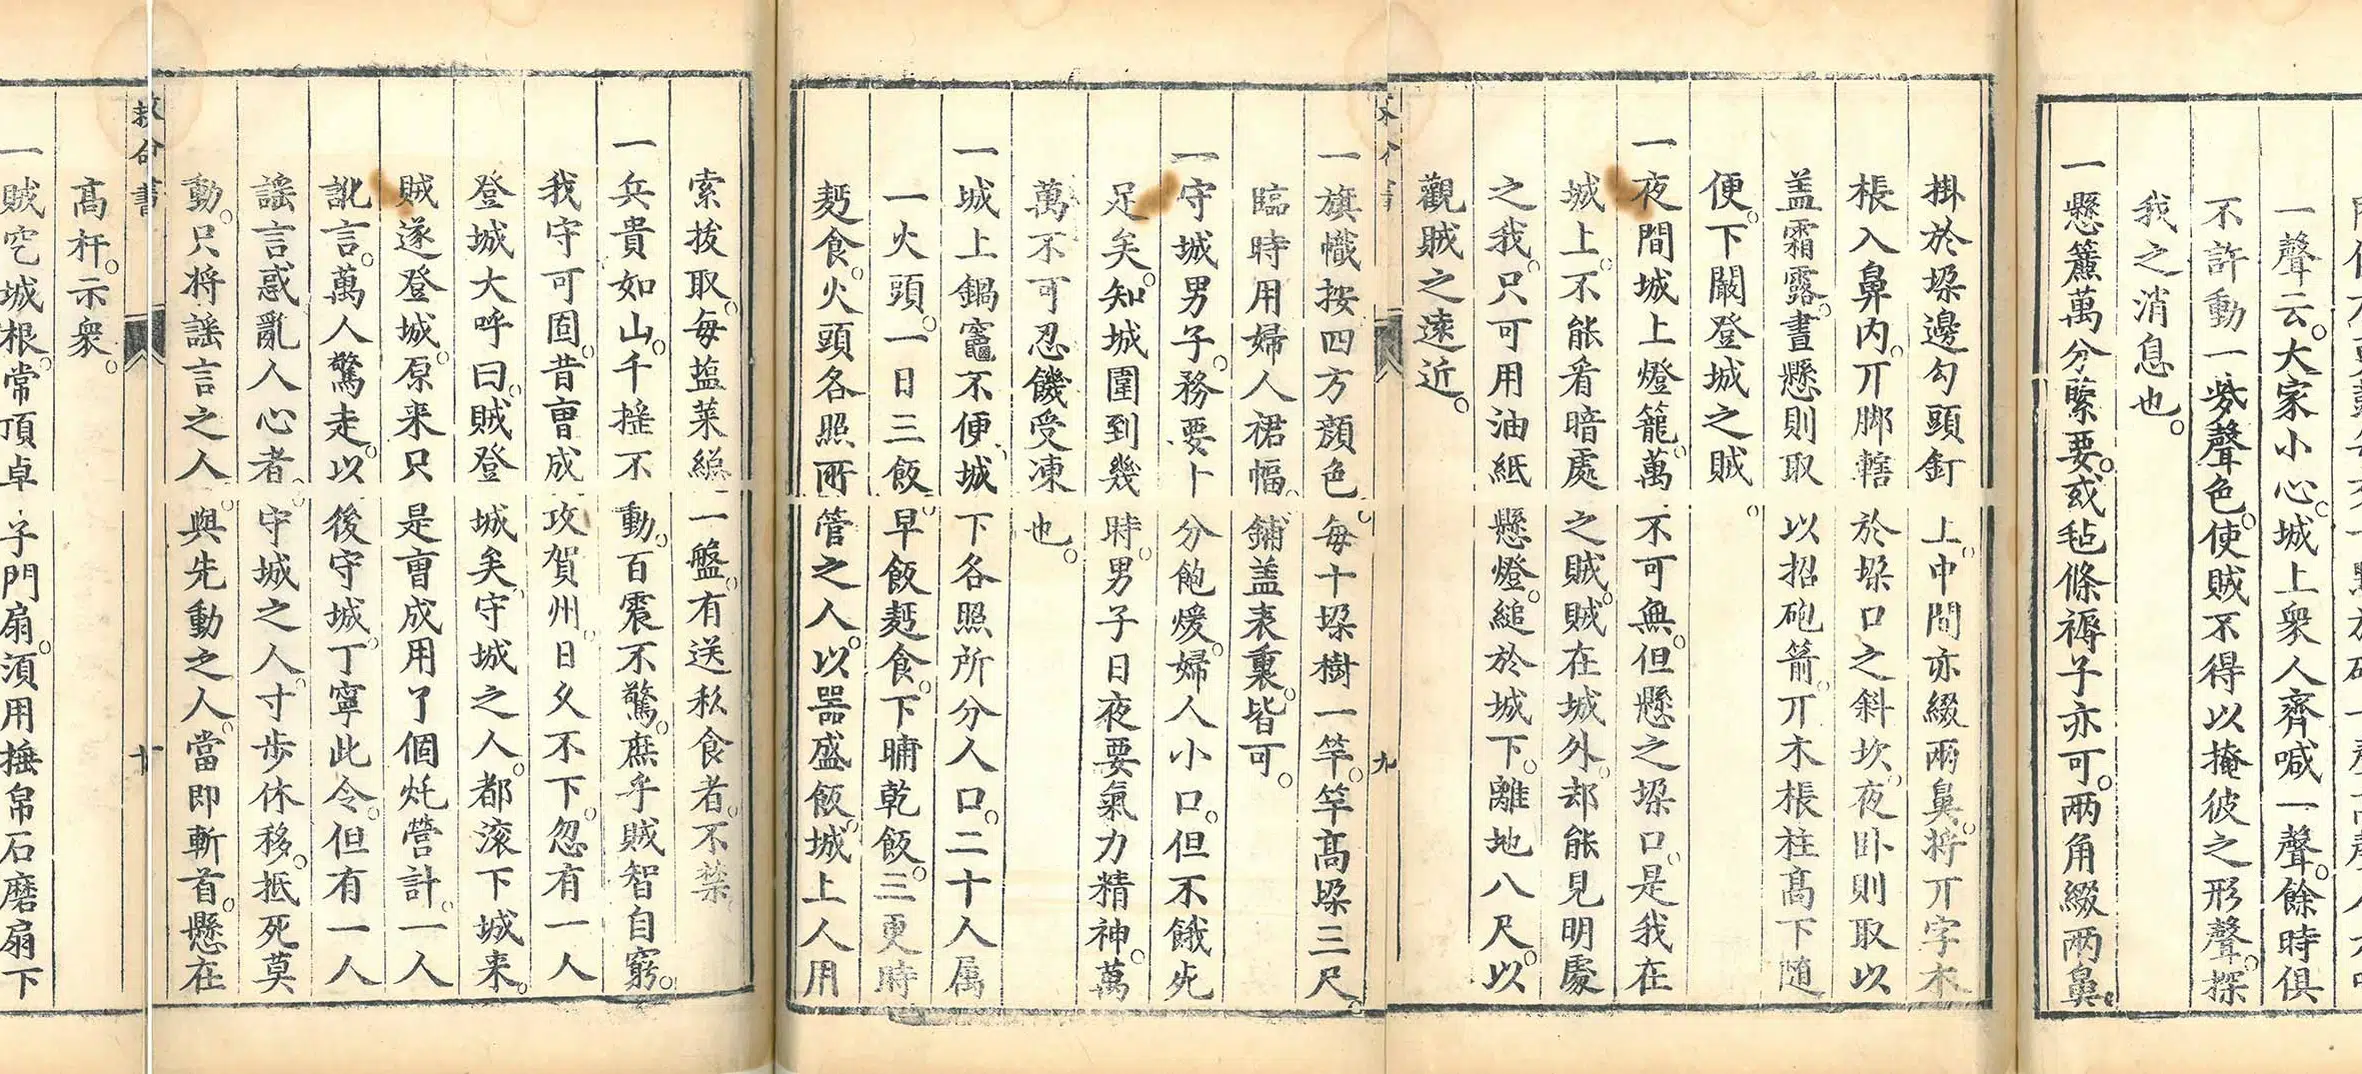 一聲云大家小心城上衆人齊喊一聲餘時俱
不許動一些聲色使賊不得以掩彼之形聲探
我之消息也
一懸簾萬分緊要或毡條褥子亦可兩角綴兩鼻
掛於垜邊勾頭釘上中間亦綴兩鼻將丌字木
棖入鼻内丌脚轄於垜口之斜坎夜卧則取以
盖霜露晝懸則取以招砲箭丌木棖柱髙下隨
便下闞登城之賊
一夜間城上燈籠萬不可無但懸之垜口是我在
城上不能看暗處之賊賊在城外却能見明處
之我只可用油紙懸燈縋於城下離地八尺以
觀賊之遠近
救命書
九
一旗幟按四方顔色每十垜樹一竿竿髙垜三尺
臨時用婦人裙幅鋪盖表裏皆可
一守城男子務要十分飽煖婦人小口但不餓死
足矣知城圍到幾時男子日夜要氣力精神萬
萬不可忍饑受凍也
一城上鍋竈不便城下各照所分人口二十人属
一火頭一日三飯早飯麪食下晡乾飯三更時
麪食火頭各照所管之人以器盛飯城上人用
索拔取每塩菜緫一盤有送私食者不禁
一兵貴如山千搖不動百震不驚庶乎賊智自窮
我守可固昔曹成攻賀州日久不下忽有一人
登城大呼曰賊登城矣守城之人都滚下城来
賊遂登城原来只是曹成用了個奼營計一人
訛言萬人驚走以後守城丁寧此令但有一人
謡言惑亂人心者守城之人寸歩休移抵死莫
動只将謡言之人與先動之人當即斬首懸在
救命書
十
髙杆示衆
一賊穵城根常頂卓子門扇須用捶帛石磨扇下